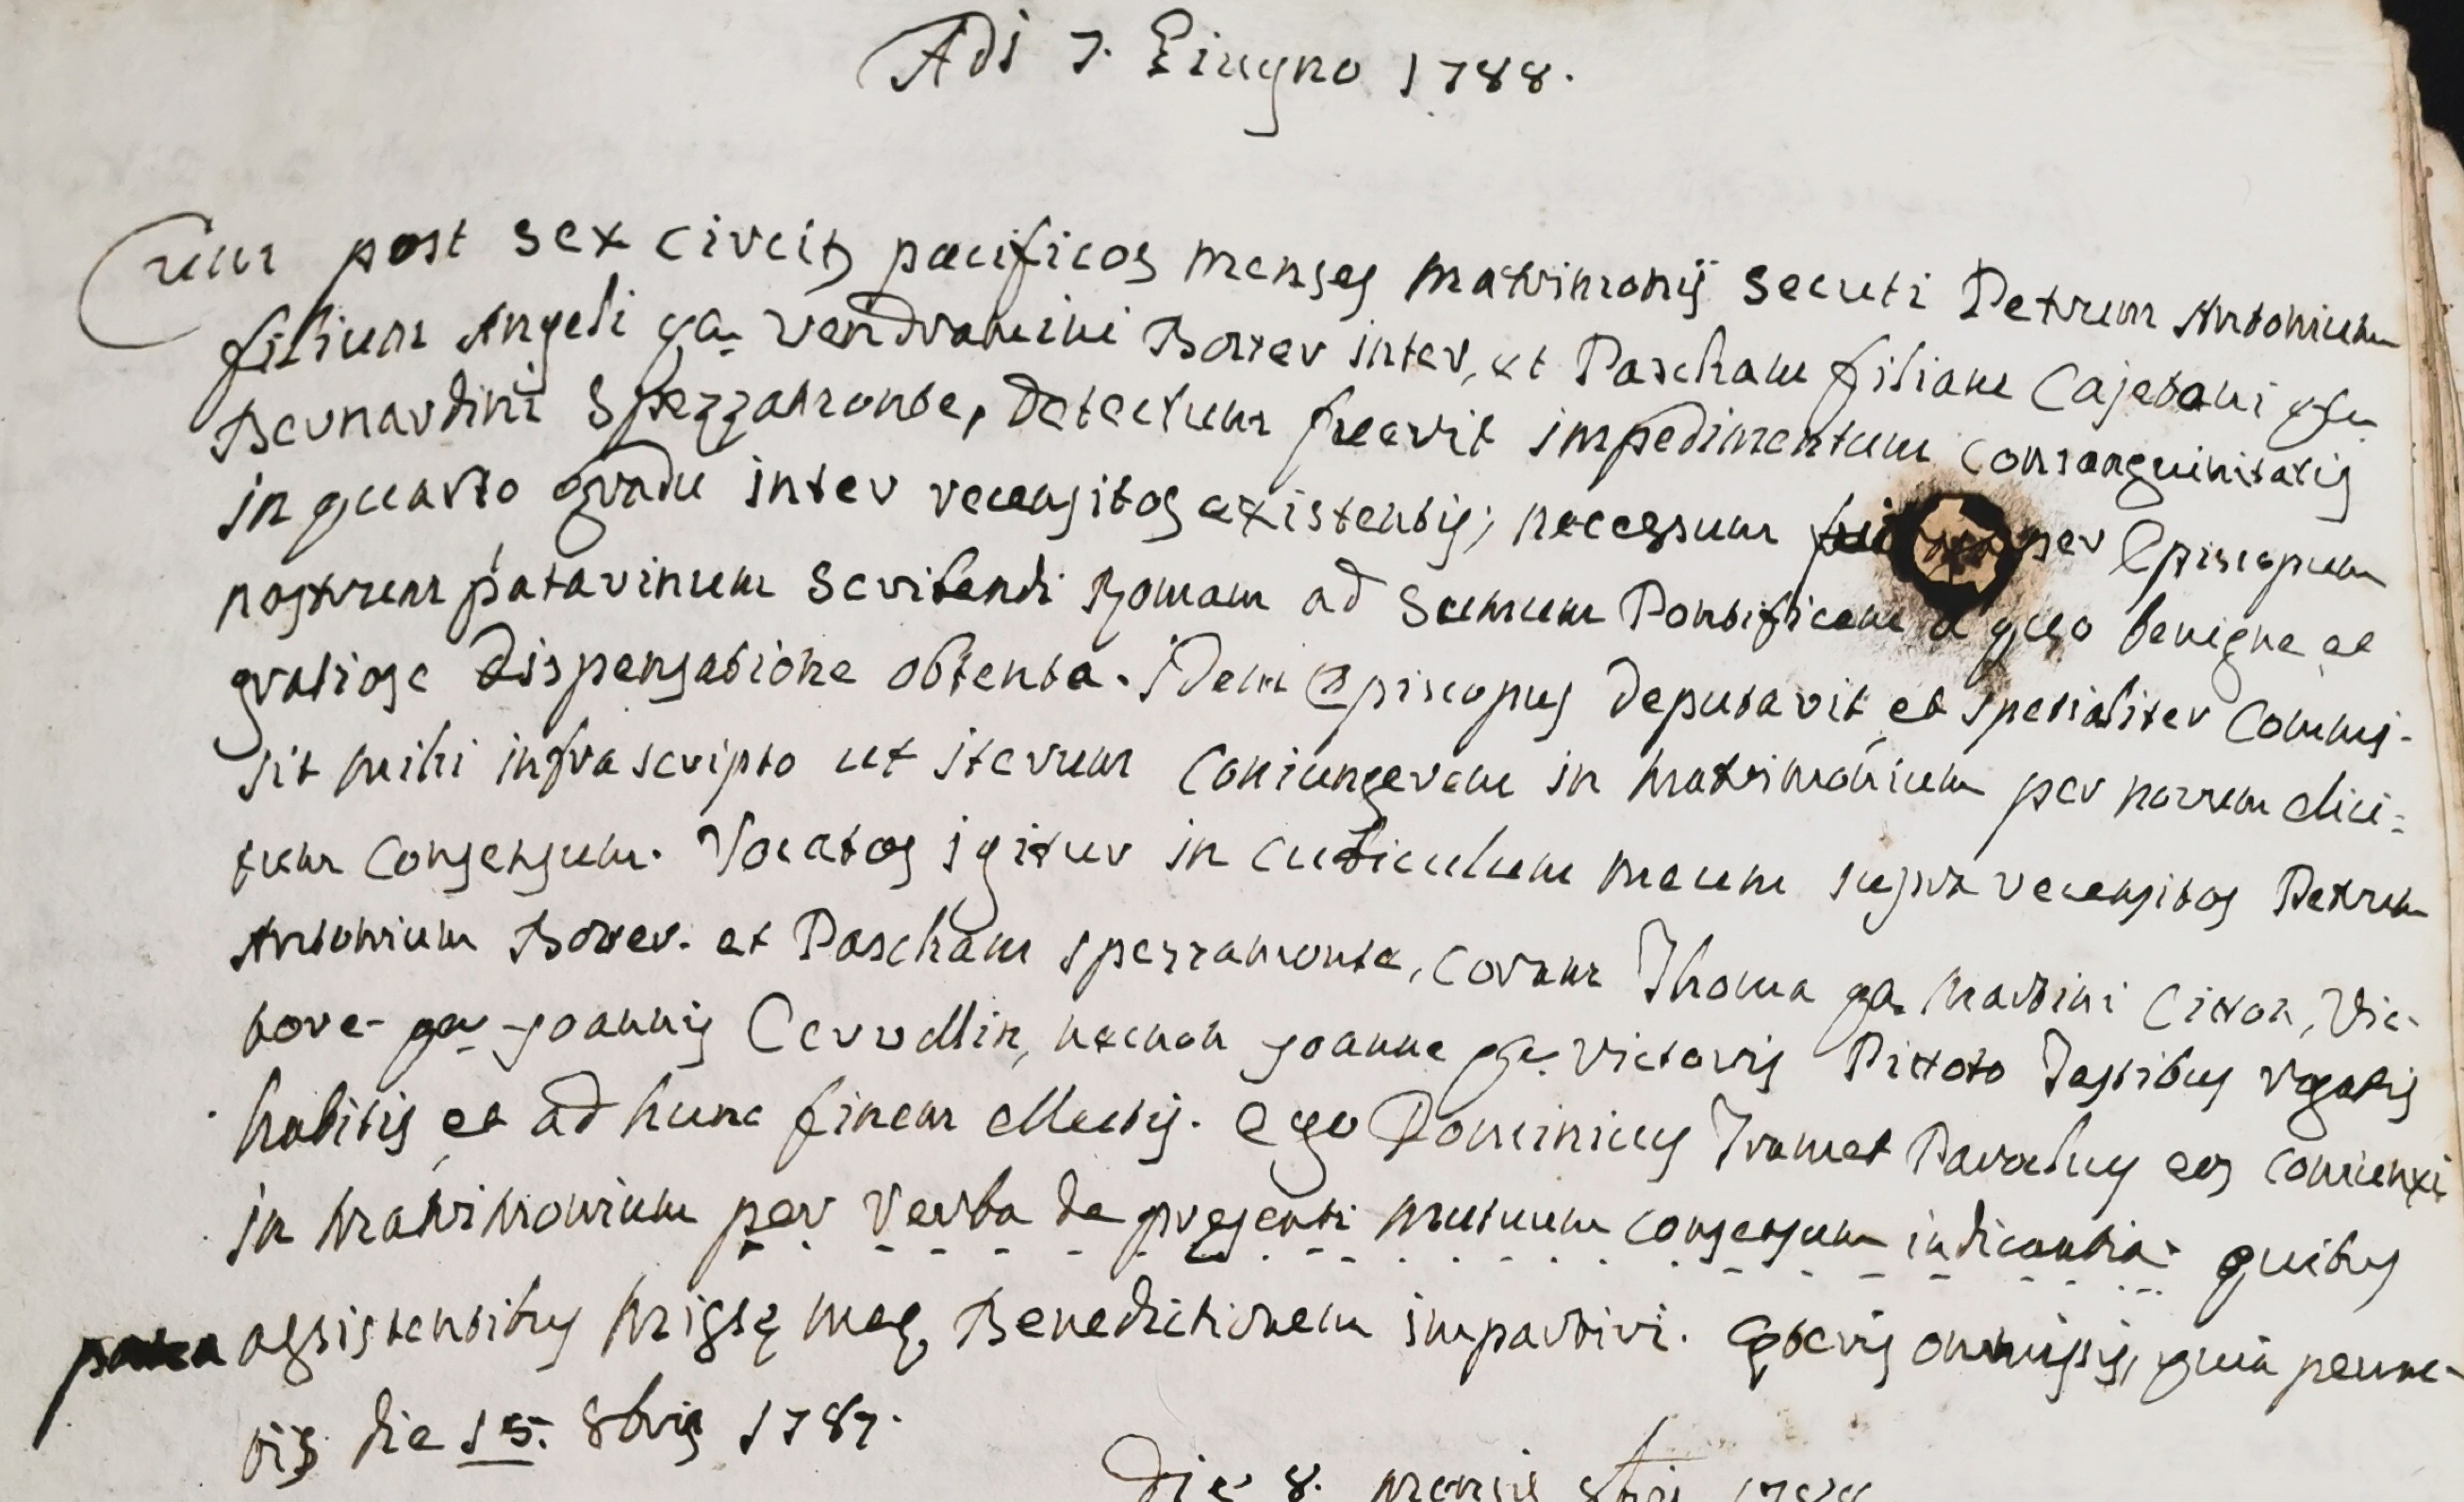 Adi 7. Giugno 1788.
Cum post sex circit, pacificos menses matrimonij secuti Petrum Antonium
filium Angeli qm Vendramini Borrer inter, et Pascham filiam Cajetani qm
Bernardini Spezzamonte, detectum fuerit impedimentum consanguinitatis
in quarto gradu inter recensitos existentis; necessum per Episcopum
nostrum patavinum scribendi Romam ad Sumum Pontificem a quo benigne ac
gratiose dispensatione obtenta. Idem Episcopus deputavit et spetialiter commi-
sit mihi infrascripto ut iterum coniungerem in matrimonium per novum elici=
tum consensum. Vocatos igitur in cubiculum meum supra recensitos Petrum
Antonium Borrer. et Pascham spezzamonte, coram Thoma qm Martini Citton, Vic-
tore qm Joannis Cervellin, necnon Joanne qm Victoris Pittoto Testibus rogatis
habitis et ad hunc finem ellectis. Ego Dominicus Tramet Parochus eos coniunxi
in matrimonium per verba de presenti mutuum consensum indicantia. quibus
postea assistentibus missę meę, Benedictionem impartivi. Cęteris ommissis, quia perac-
tis die 15. 8bris 1787.
Die 8. mensis 8bris 1788